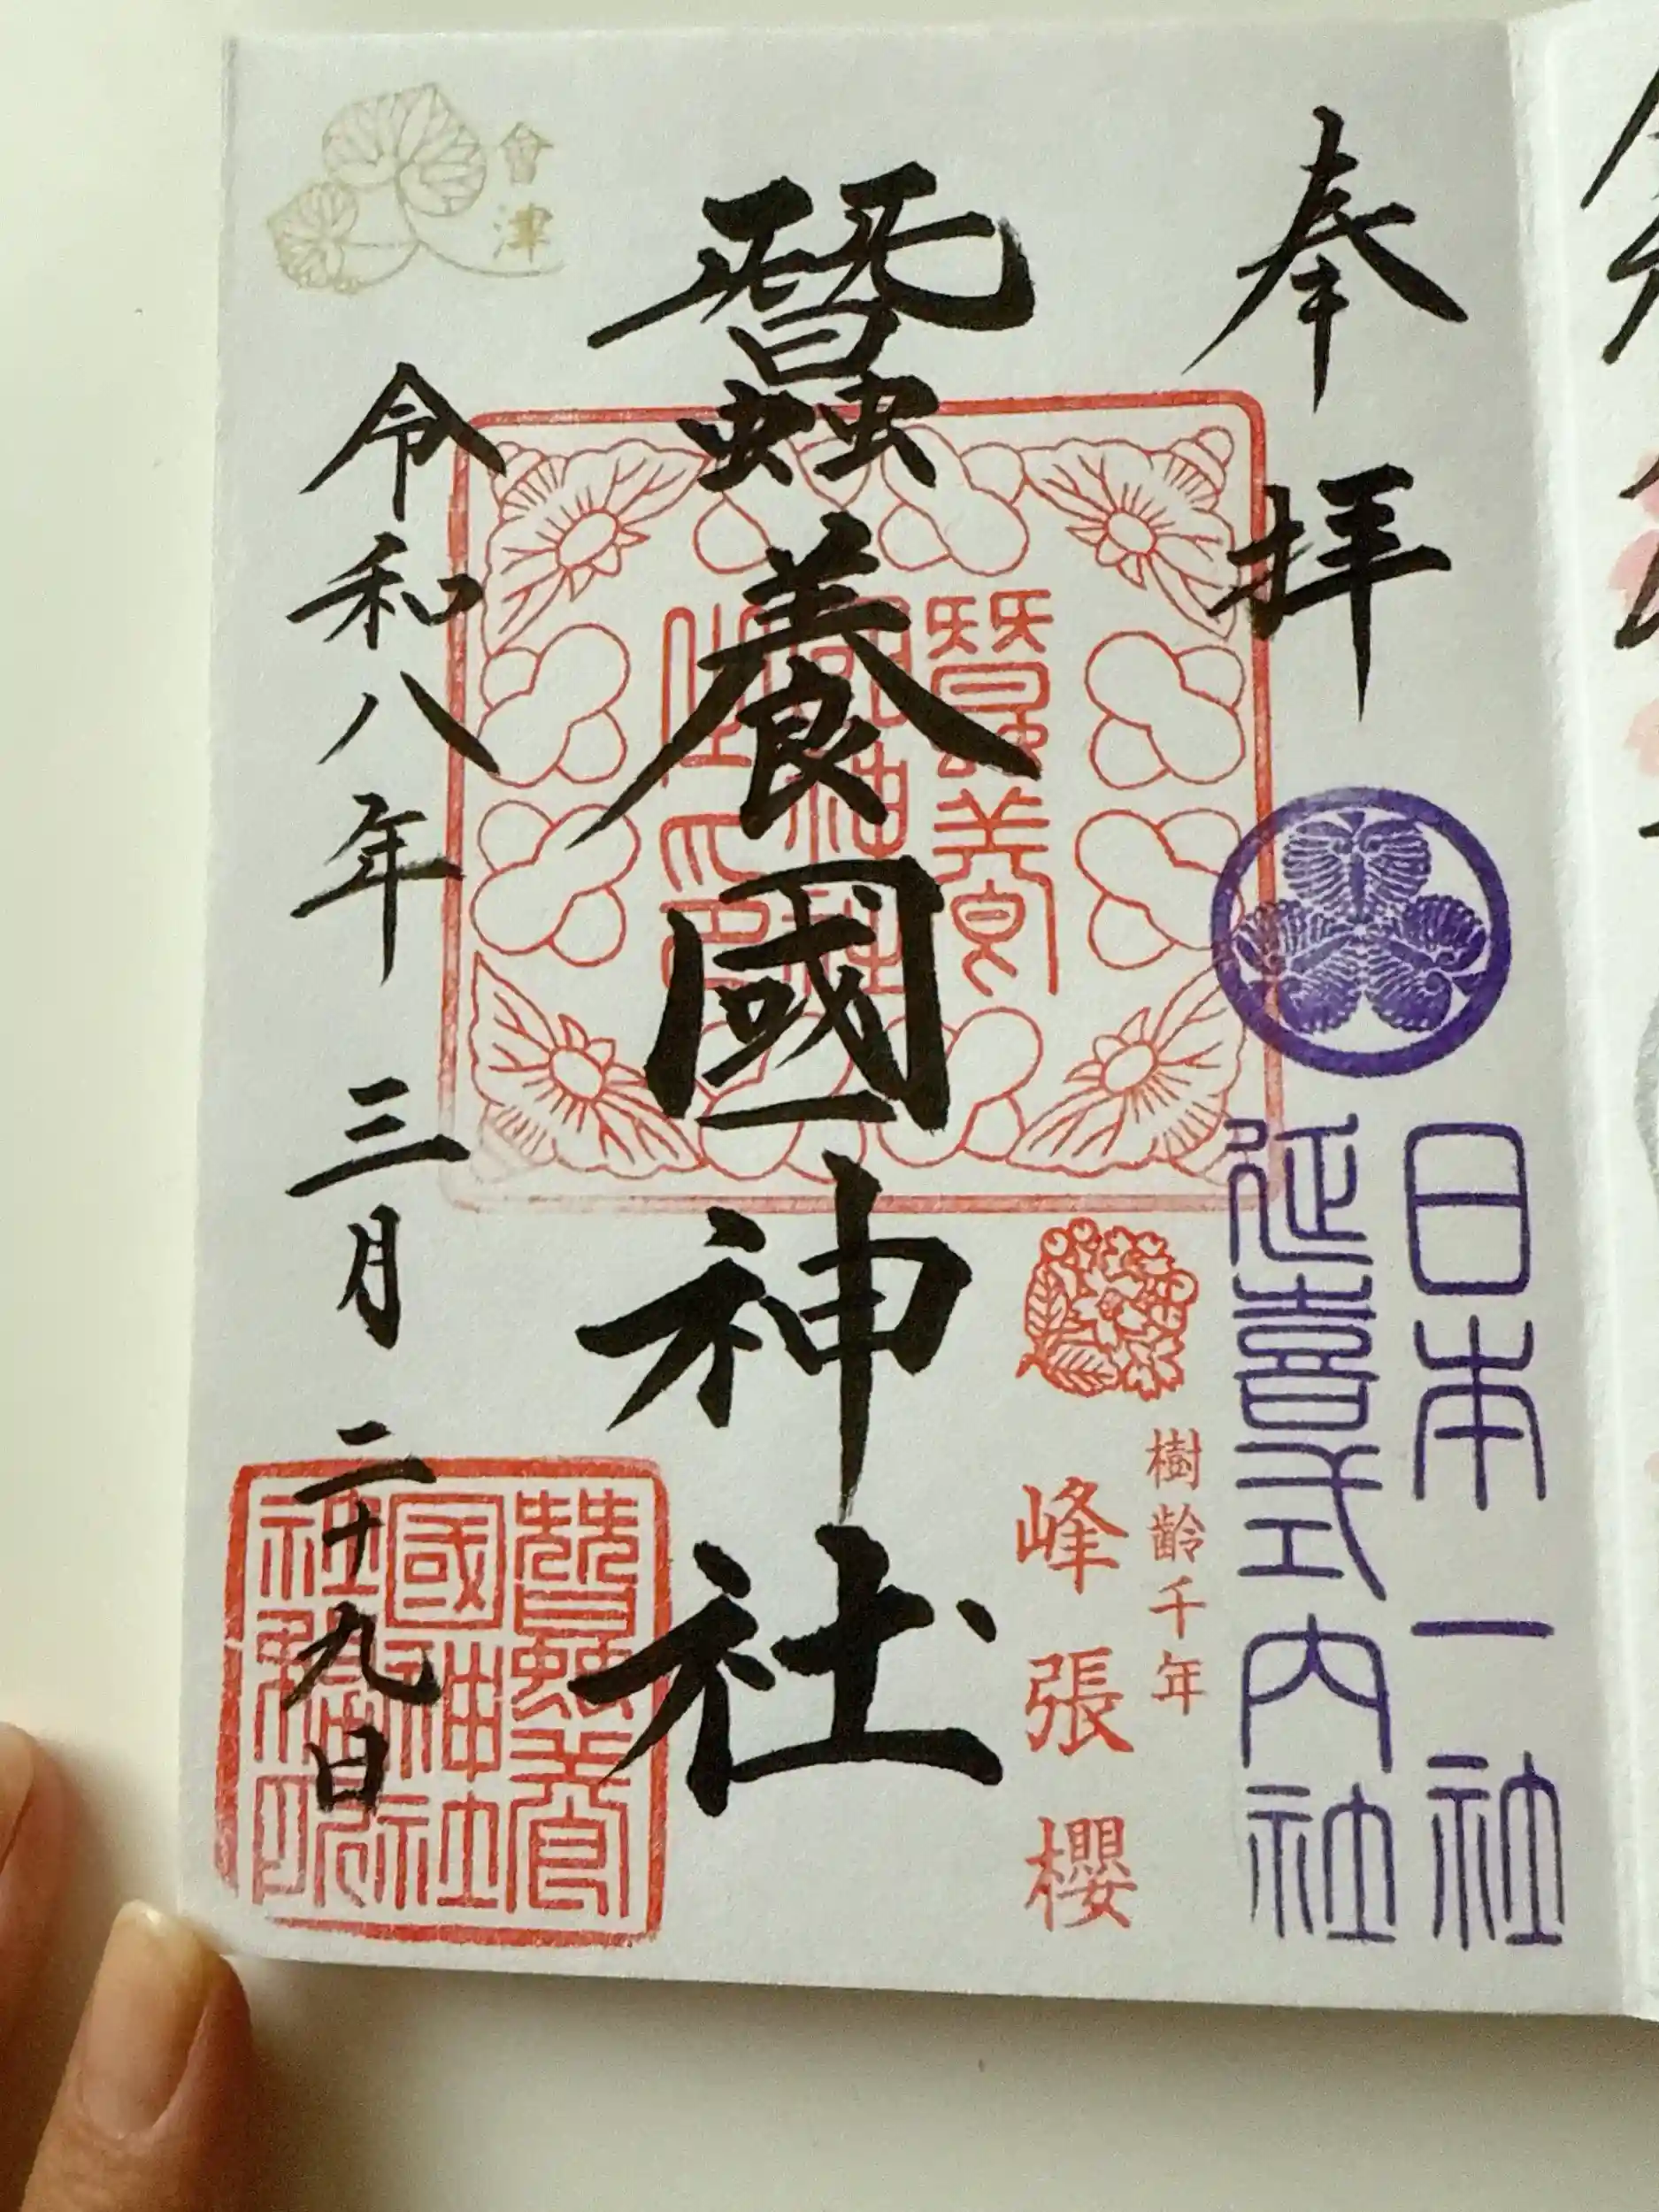 奉拝
日本一社
延喜式内社
樹齢千年
峰張櫻
蠶養國神社
蠶養國神社
會津
令和八年 三月 二十九日